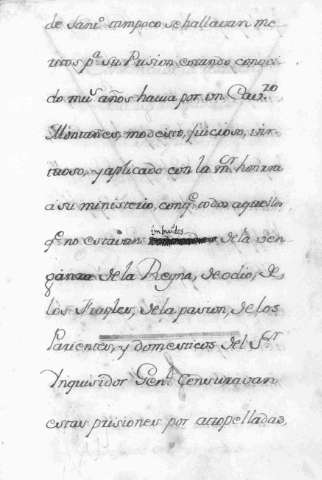 de Sanᵗᵒ tampoco se hallavan me
ritos pᵃ su Prision estando conoci
do muˢ años havia por un Cavʳᵒ
Montañes, modesto, juicioso, vir
tuoso, y aplicado con la mʳ honrra
a su ministerio, conq.ᵉ todos aquellos
qᵉ no estavan impuestos de la ven
ganza de la Reyna, de odio, de
los Frayles, de la pasion, de los
Parientes, y domesticos del Sᵒʳ
Ynquisidor Genˡ Censuravan
estas prisiones por atropelladas,